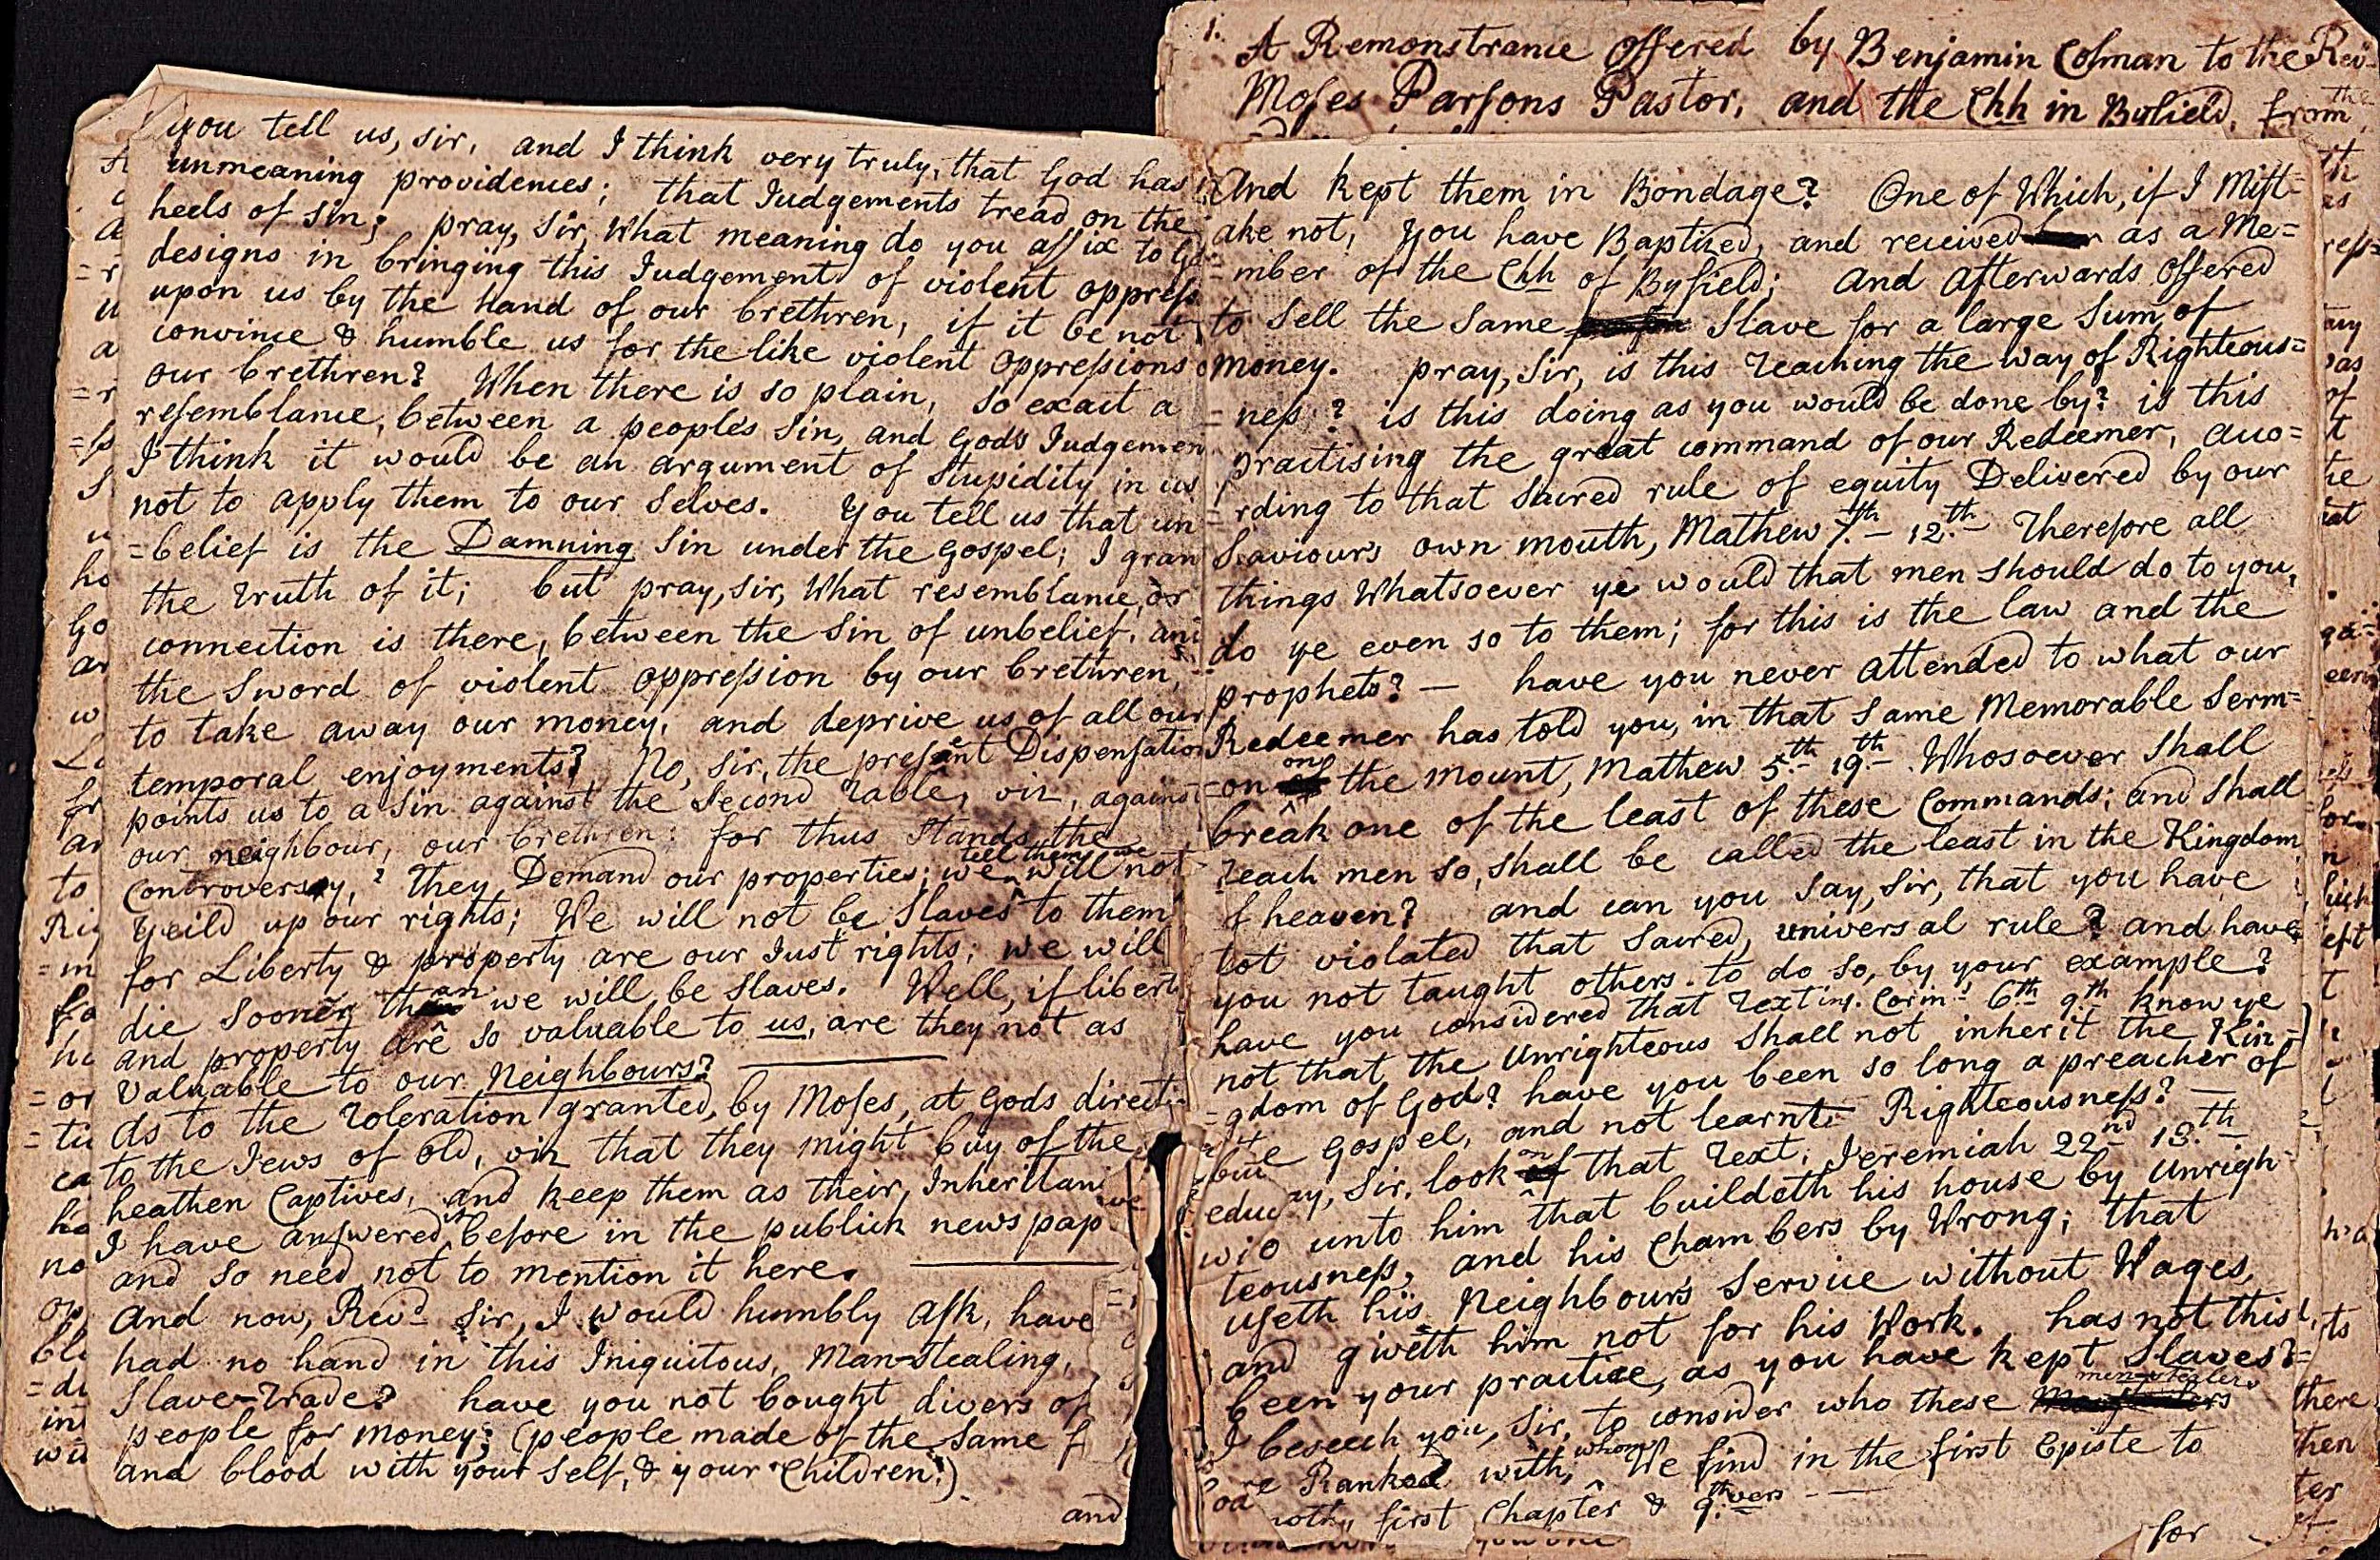 you tell us, sir, and I think very truly, that God has
unmeaning providences; that Judgements tread on the
heels of sin; pray, sir, What meaning do you affix to
designs in bringing this Judgement of violent oppress
upon us by the hand of our brethren, if it be not
convince & humble us for the like violent oppressions
our brethren? When there is so plain, so exact a
resemblance, between a people's sin, and God's Judgemen
I think it would be an argument of Stupidity in us
not to apply them to our selves. You tell us that un
=belief is the Damning Sin under the Gospel; I gran
the truth of it; but pray, sir, What resemblance, or
connection is there, between the Sin of unbelief, and
the Sword of violent oppression by our brethren,
to take away our money, and deprive us of all our
temporal enjoyments? No, sir, the present Dispensation
points us to a Sin against the Second table, viz, against
our neighbour, our brethren: for thus Stands the
Controversy, they Demand our properties; we tell them we will not
Yeild up our rights; We will not be Slaves to them
for Liberty & property are our Just rights; we will
die sooner than we will be Slaves. Well, if libert
and property are so valuable to us, are they not as
valuable to our Neighbours?
As to the toleration granted, by Moses, at Gods directi
to the Jews of old, viz that they might buy of the
heathen Captives, and keep them as their Inheritan
I have answered it before in the publick news pap
and so need not to mention it here.
And now, Revd Sir, I would humbly ask, have
had no hand in this Iniquitous, Man-Stealing,
Slave-trade? have you not bought divers of
people for money; (people made of the same f
and blood with your self, & your Children!)
and
1. A Remonstrance offered by Benjamin Colman to the Revd
Moses Parsons Pastor, and the Chh in Byfield, from the
And kept them in Bondage? One of Which, if I Mist=
ake not, You have Baptized, and received as a Me=
=mber of the Chh of Byfield; and afterwards offered
to Sell the Same Slave for a large Sum of
money. pray, Sir, is this teaching the way of Righteous=
=ness? is this doing as you would be done by? is this
practising the great command of our Redeemer, acco=
=rding to that Sacred rule of equity Delivered by our
Saviours own mouth, Mathew 7.th 12.th Therefore all
things Whatsoever ye would that men should do to you,
do ye even so to them; for this is the law and the
prophets? — have you never attended to what our
Redeemer has told you, in that same Memorable Serm=
=on on the mount, Mathew 5.th 19.th Whosoever Shall
break one of the least of these Commands; and Shall
teach men so, shall be called the least in the Kingdom
f heaven? and can you Say, Sir, that you have
not violated that Sacred, universal rule? and have
you not taught others to do so, by your example?
have you considered that text in 1. Corin: 6th 9th know ye
not that the Unrighteous Shall not inherit the Kin=
=gdom of God? have you been so long a preacher of
the Gospel, and not learnt Righteousness? —
ay, Sir, look on that text, Jeremiah 22nd 13.th
wo unto him that buildeth his house by unrigh=
teousness, and his Chambers by Wrong; that
useth his Neighbour's Service without Wages,
and giveth him not for his Work. has not this
been your practice, as you have kept Slaves?
I beseech you, Sir, to consider who these men-stealers
are Ranked with, whom We find in the first Episte to
moth, first Chapter & 9.th vers
for